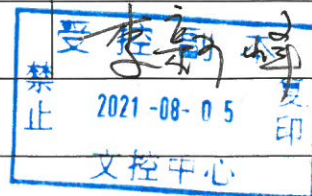 受控
禁止
2021-08-05
复印
文控中心